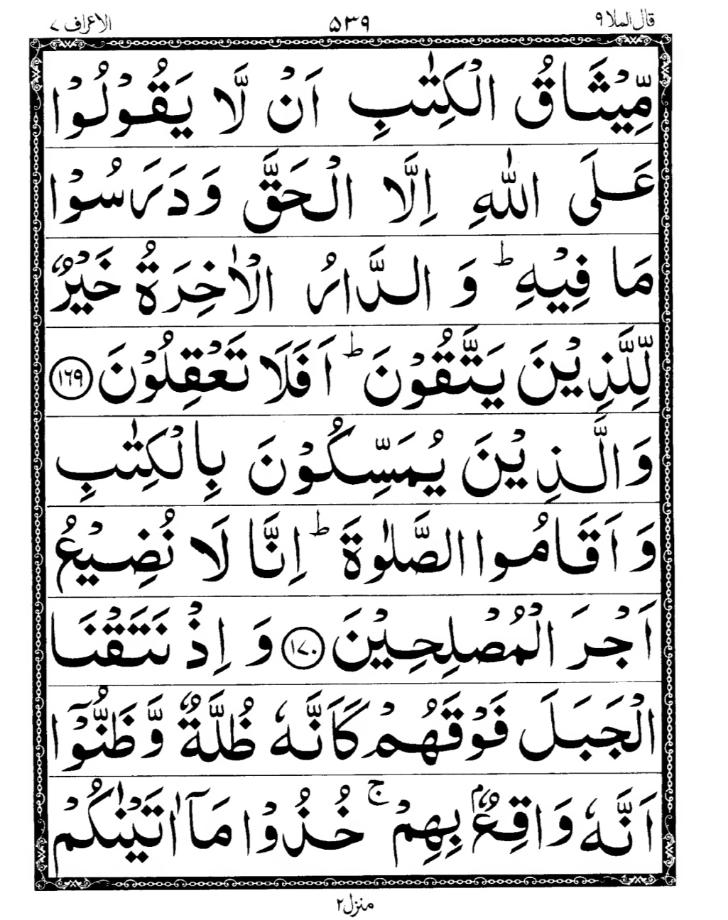 قال الملا ۹ ۵۳۹ الاعراف ۷
مِّیْثَاقُ الْكِتٰبِ اَنْ لَّا یَقُوْلُوْا
عَلَی اللّٰهِ اِلَّا الْحَقَّ وَدَرَسُوْا
مَا فِیْهِ ؕ وَ الدَّارُ الْاٰخِرَةُ خَیْرٌ
لِّلَّذِیْنَ یَتَّقُوْنَ ؕ اَفَلَا تَعْقِلُوْنَ ۱۶۹
وَالَّذِیْنَ یُمَسِّكُوْنَ بِالْكِتٰبِ
وَ اَقَامُوا الصَّلٰوةَ ؕ اِنَّا لَا نُضِیْعُ
اَجْرَ الْمُصْلِحِیْنَ ۱۷۰ وَ اِذْ نَتَقْنَا
الْجَبَلَ فَوْقَهُمْ كَاَنَّهٗ ظُلَّةٌ وَّ ظَنُّوْۤا
اَنَّهٗ وَاقِعٌۢ بِهِمْ ۚ خُذُوْا مَاۤ اٰتَیْنٰكُمْ
منزل ۲